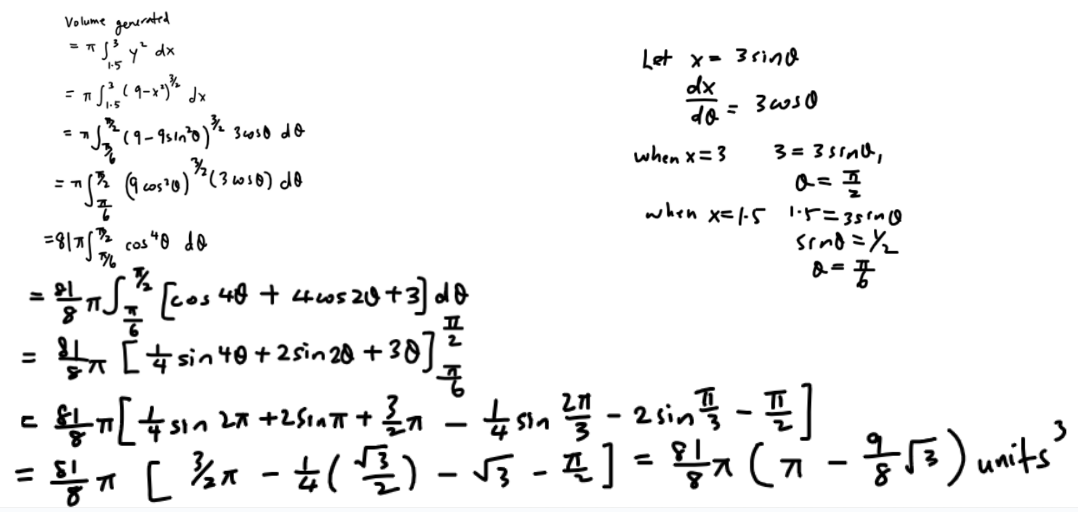 Volume generated
= π ∫_{1.5}^{3} y² dx
= π ∫_{1.5}^{3} (9-x²)^{3/2} dx
= π ∫_{π/6}^{π/2} (9-9sin²θ)^{3/2} 3cosθ dθ
= π ∫_{π/6}^{π/2} (9cos²θ)^{3/2} (3cosθ) dθ
=81π ∫_{π/6}^{π/2} cos⁴θ dθ
= 81/8 π ∫_{π/6}^{π/2} [cos 4θ + 4cos2θ+3] dθ
= 81/8 π [1/4 sin4θ + 2sin2θ + 3θ]_{π/6}^{π/2}
= 81/8 π [1/4 sin 2π + 2sinπ + 3/2 π - 1/4 sin 2π/3 - 2sin π/3 - π/2]
= 81/8 π [3/2 π - 1/4 (√3/2) - √3 - π/2] = 81/8 π (π - 9/8 √3) units³
Let x = 3sinθ
dx/dθ = 3cosθ
when x=3 3=3sinθ,
θ = π/2
when x=1.5 1.5=3sinθ
sinθ = 1/2
θ = π/6